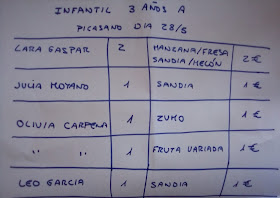 INFANTIL 3 AÑOS A
PICASANO DIA 28/5
LARA GASPAR 2 MANZANA/FRESA SANDIA/MELÓN 2 €
JULIA MOYANO 1 SANDIA 1 €
OLIVIA CARPENA 1 ZUMO 1 €
" " 1 FRUTA VARIADA 1 €
LEO GARCIA 1 SANDIA 1 €